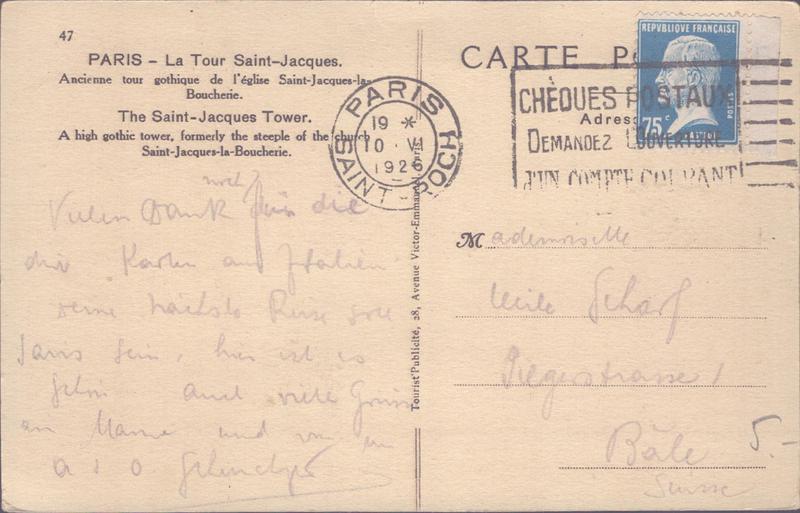 47
PARIS - La Tour Saint-Jacques.
Ancienne tour gothique de l'église Saint-Jacques-la-
Boucherie.
The Saint-Jacques Tower.
A high gothic tower, formerly the steeple of the church
Saint-Jacques-la-Boucherie.
noch
Vielen Dank für die
drei Karten aus Italien
nächste Reise soll
Paris sein, hier ist es
schön und viele Grüsse
an Mama und von
Tourist'Publicité, 28, Avenue Victor-Emmanuel, Paris
PARIS
19 *
10 · VI
1926
SAINT-ROCH
CARTE PO
REPUBLIQUE FRANÇAISE
75 c
POSTES
PASTEUR
CHÈQUES POSTAUX
Adres
DEMANDEZ L'OUVERTURE
D'UN COMPTE COURANT
Mademoiselle
Scharf
1
Bâle
Suisse
5.-